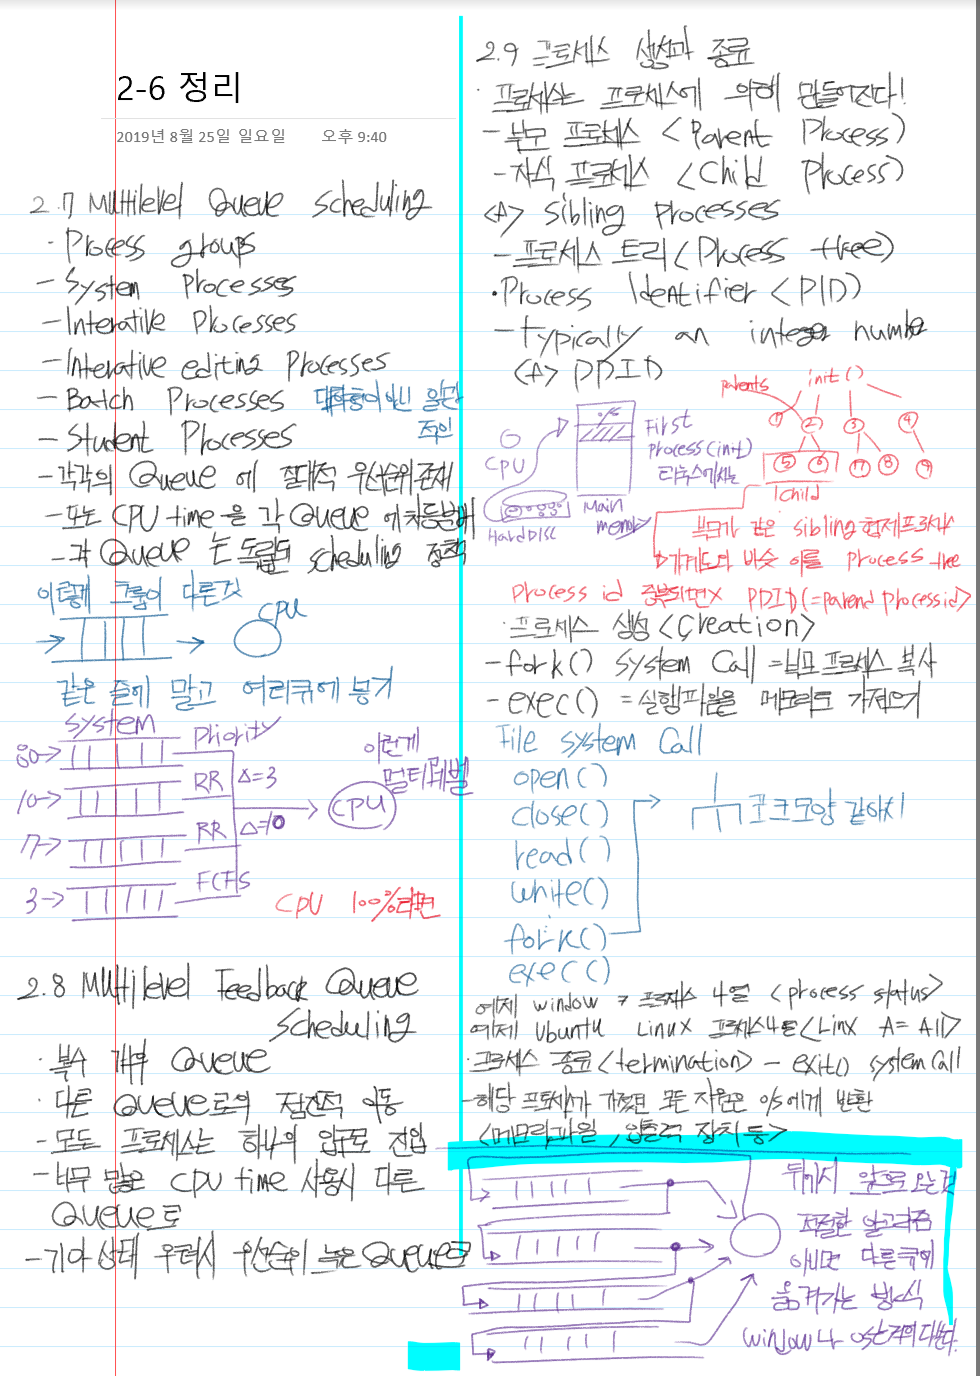 2-6 정리
2019년 8월 25일 일요일 오후 9:40
2.7 Multilevel Queue Scheduling
· Process groups
- System Processes
- Interative Processes
- Interative editing Processes
- Batch Processes 대화형이 아닌 일괄
적인
- Student Processes
- 각각의 Queue 에 절대적 우선순위 존재
- 또는 CPU time 을 각 Queue 에 차등분배
- 각 Queue 는 독립된 scheduling 정책
이렇게 그룹이 다른것
CPU
같은 줄에 말고 여러큐에 넣기
System
Priority
이런게
멀티레벨
80→
10→ RR Δ=3
CPU
7→ RR Δ=10
3→ FCFS
CPU 100%라면
2.8 Multilevel Feedback Queue
Scheduling
· 복수 개의 Queue
· 다른 Queue로의 점진적 이동
- 모든 프로세스는 하나의 입구로 진입
- 너무 많은 CPU time 사용시 다른
Queue로
- 기아 상태 우려시 우선순위 높은 Queue로
2.9 프로세스 생성과 종류
· 프로세스는 프로세스에 의해 만들어진다!
- 부모 프로세스 <Parent Process)
- 자식 프로세스 <Child Process)
<A> Sibling Processes
- 프로세스 트리 <Process tree)
· Process Identifier <PID)
- typically an integer number
<A> PPID
parents init()
① ② ③ ④
⑤ ⑥ ⑦ ⑧ ⑨
child
OS
CPU
Hard Disc
Main
memory
First
process(init)
리눅스에서는
부모가 같은 sibling 형제프로세스
가계도와 비슷 이를 Process tree
Process id 중복되면X PPID(=parend process id>
· 프로세스 생성 <Creation>
- fork() System Call = 부모 프로세스 복사
- exec() = 실행파일을 메모리로 가져오기
File system Call
open()
close()
read()
write()
fork() 포크모양 같아서
exec()
예제 window 7 프로세스 나열 <process status>
예제 Ubuntu Linux 프로세스나열 <Linx A = All>
· 프로세스 종류 <termination> - exit() system call
- 해당 프로세스가 가졌던 모든 자원은 O/S에게 반환
<메모리, 파일, 입출력 장치 등>
뒤에서 앞으로 오는것
적절한 알고리즘
아니면 다른큐에
옮겨가는 방식
window나 os는 거의 다쓴다.